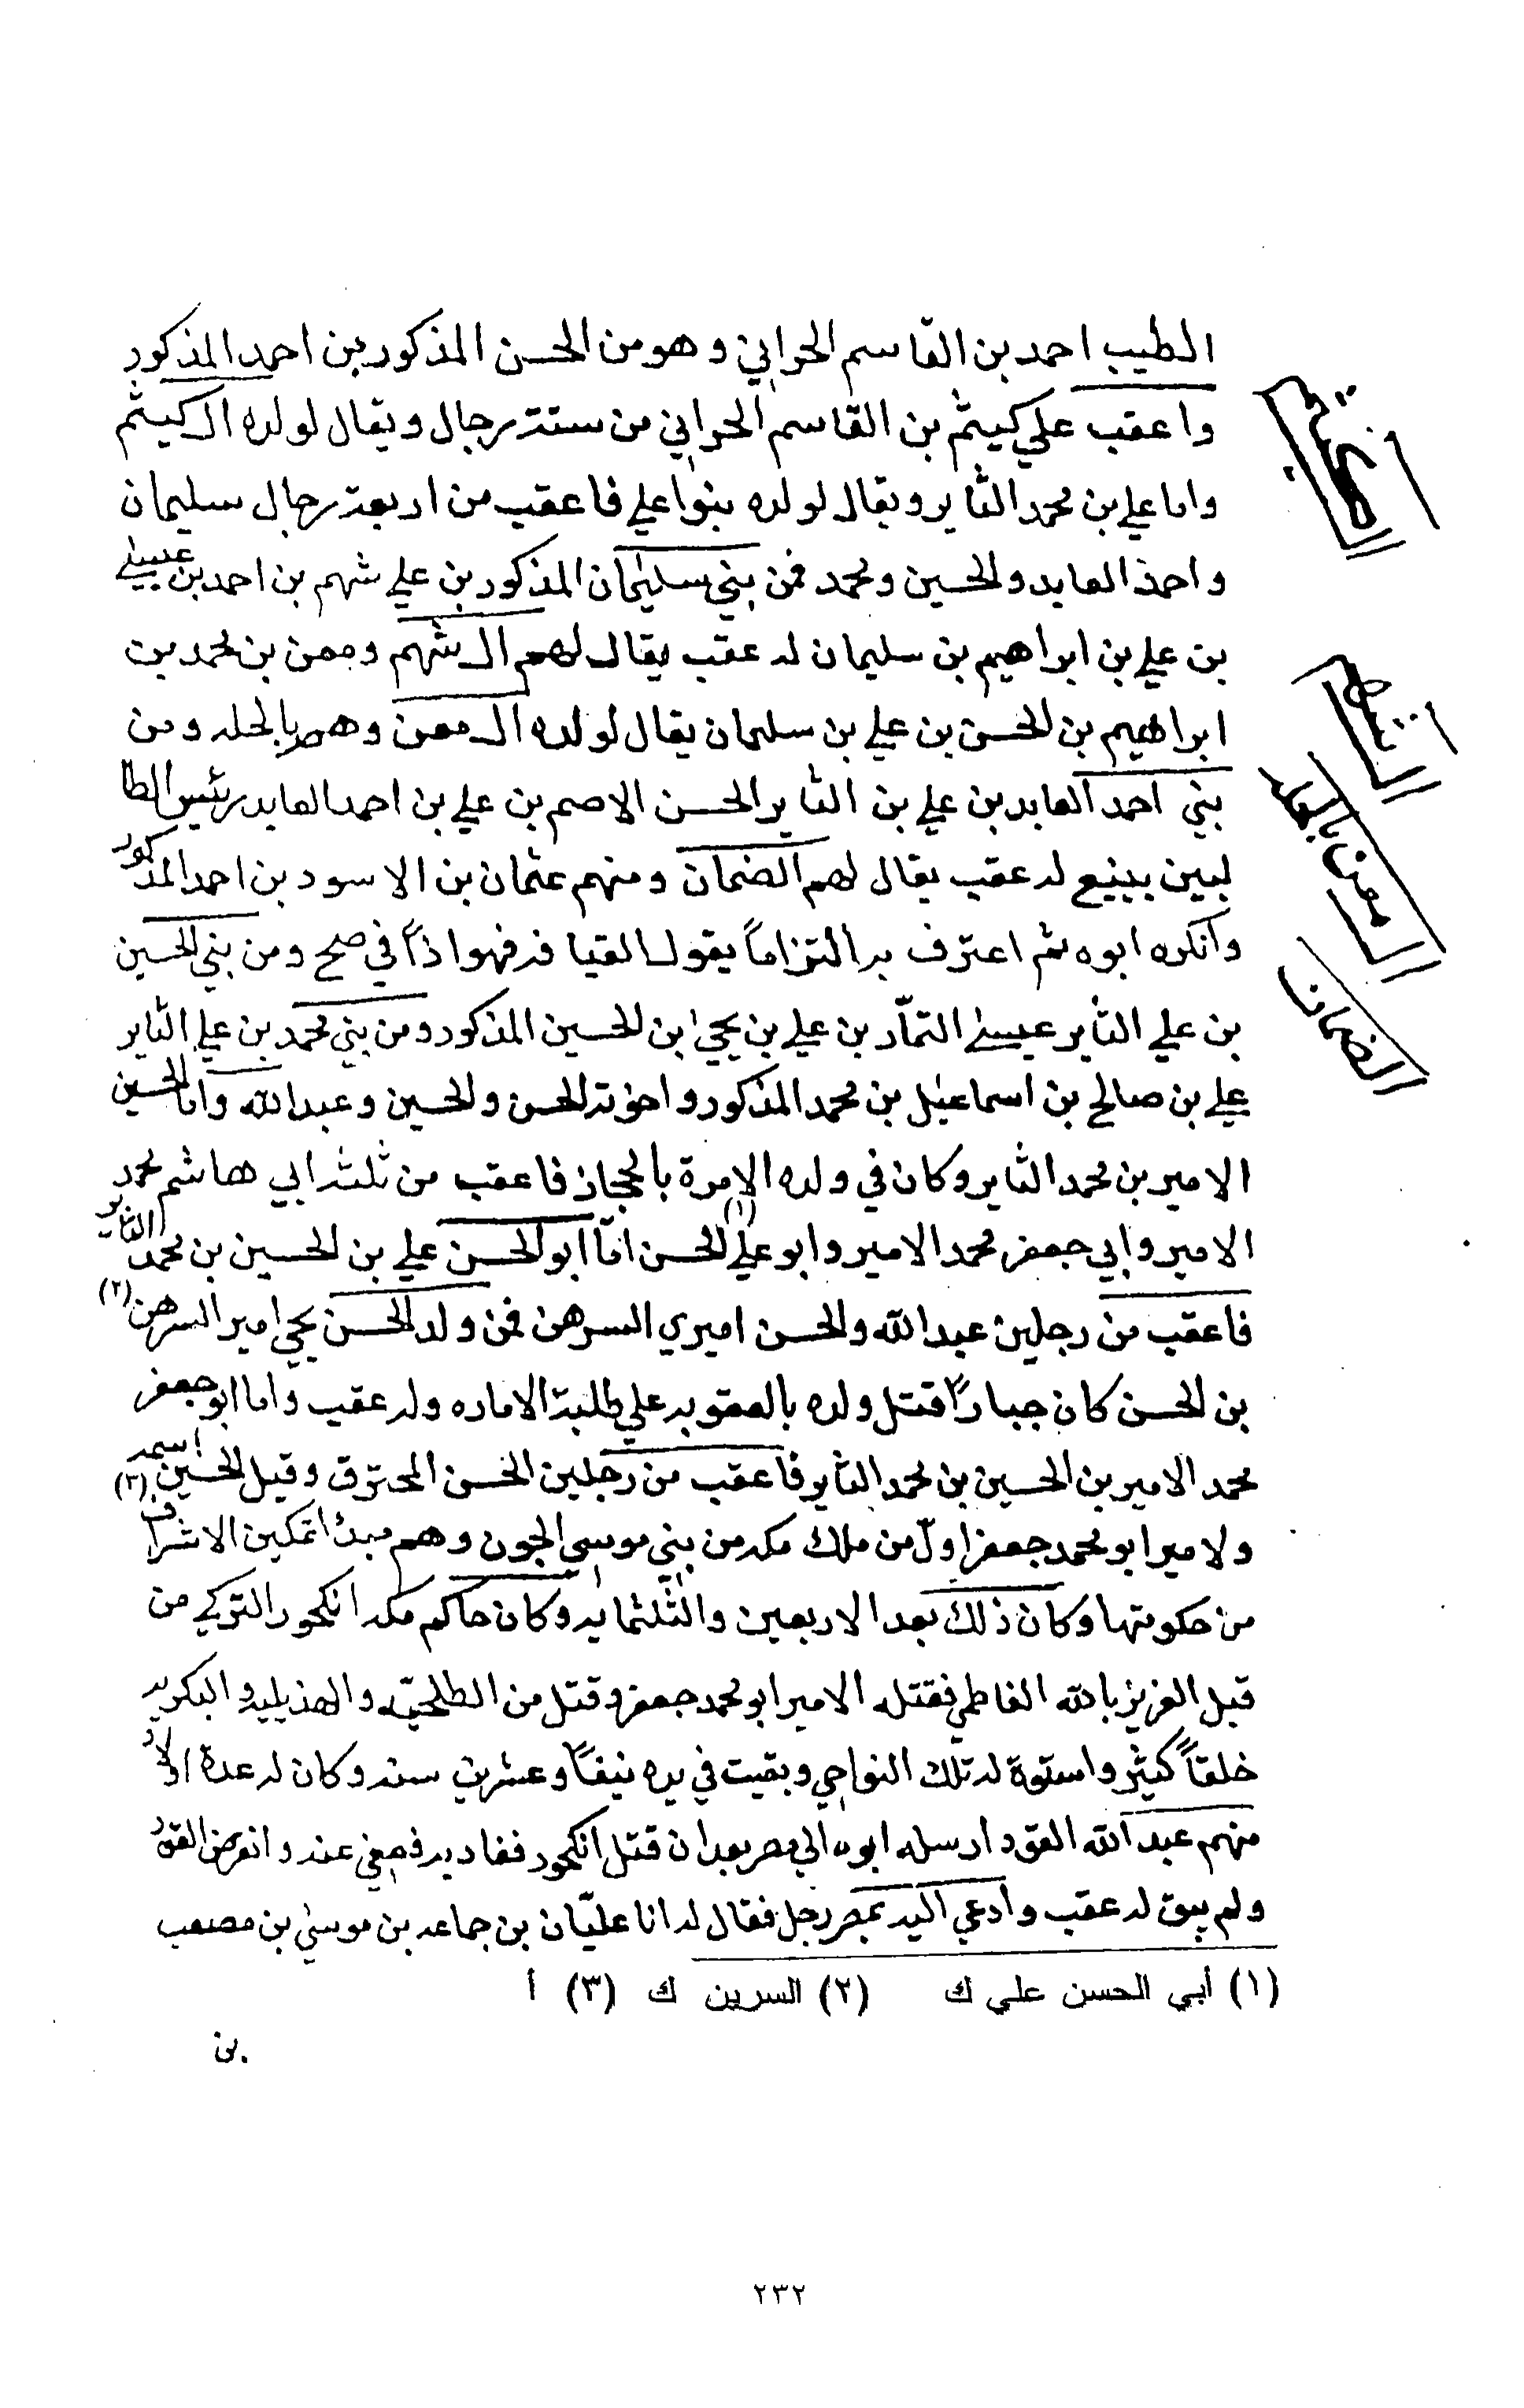 الطيب احمد بن القاسم الحراني وهو من الحسن المذكور بن احمد المذكور
واعقب علي كيثم بن القاسم الحراني من ستة رجال ويقال لولده ال كيثم
واما علي بن محمد الثاير ويقال لولده بنوا علي فاعقب من اربعة رجال سليمان
واحمد العابد والحسين ومحمد فمن بني سليمان المذكور بن علي شهم بن احمد بن عيسى
بن علي بن ابراهيم بن سليمان له عقب يقال لهم ال شهم ومعن بن محمد بن
ابراهيم بن الحسن بن علي بن سليمان يقال لولده ال معن وهم بالحله ومن
بني احمد العابد بن علي بن الثاير الحسن الاصم بن علي بن احمد العابد رئيس الطا
لبين بينبع له عقب يقال لهم الضمان ومنهم عثمان بن الاسود بن احمد المذكور
وانكره ابوه ثم اعترف به التزاماً بقول القيافه فهو اذاً في صح ومن بني الحسين
بن علي الثاير عيسى التمّار بن علي بن يحيى ابن الحسين المذكور ومن بني محمد بن علي الثاير
علي بن صالح بن اسماعيل بن محمد المذكور واخوته الحسن والحسين وعبد الله واما الحسين
الامير بن محمد الثاير وكان في ولده الامرة بالحجاز فاعقب من ثلثه ابي هاشم محمد
الامير وابي جعفر محمد الامير وابو علي الحسن (١) امّا ابو الحسن علي بن الحسين بن محمد الثاير
فاعقب من رجلين عبد الله والحسن اميري السرهن فمن ولد الحسن يحيى امير السرهن (٢)
بن الحسن كان جباراً قتل ولده بالعقوبه علي طلبة الاماره وله عقب واما ابو جعفر
محمد الامير بن الحسين بن محمد الثاير فاعقب من رجلين الحسن المحترق وقيل اسمه الحسين (٣)
ولامير ابو محمد جعفر اوّل من ملك مكه من بني موسى الجون وهم مبدا تمكين الاشراف
من حكومتها وكان ذلك بعد الاربعين والثلثمايه وكان حاكم مكه انكجور التركي من
قبل العزيز بالله الفاطمي فقتله الامير ابو محمد جعفر وقتل من الطلحيّه والهذيليه والبكريه
خلقاً كثير واستوة له تلك النواحي وبقيت في يده نيفاً وعشرين سنه وكان له عدة اولاد
منهم عبد الله القود ارسله ابوه الي مصر بعد ان قتل انكجور فقاد به فصفي عنه وانقرض القود
ولم يبق له عقب وادعي اليه بمصر رجل فقال له انا عليّان بن جماعه بن موسى بن مصعب
(١) أبي الحسن علي ك (٢) السرين ك (٣) أ
بن
ال كيثم
ال شهم
ال معن بالحله
الضمان
٢٣٢